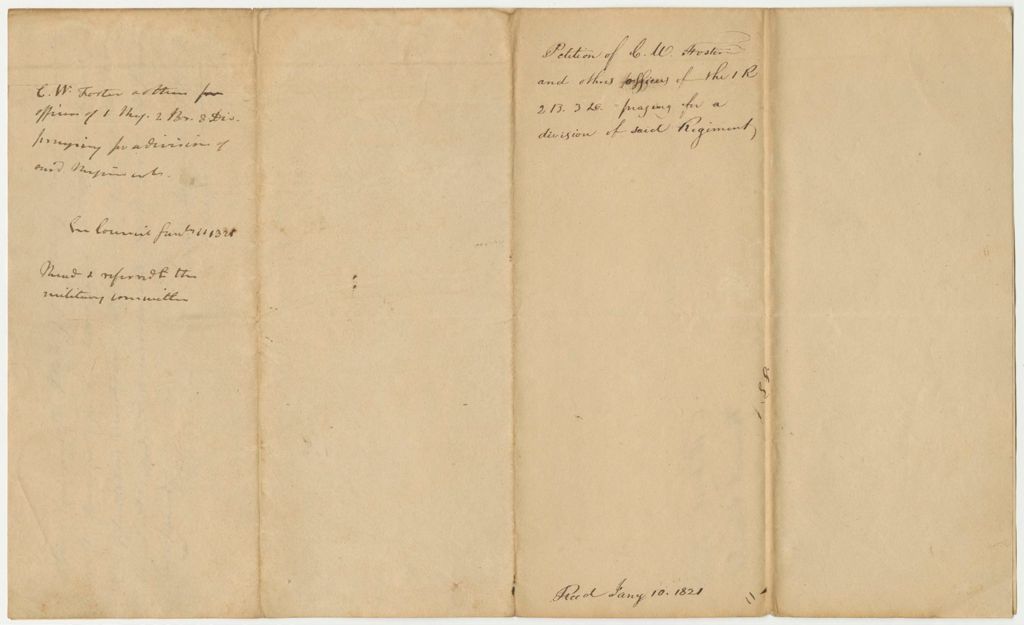 C. W. Foster & others
officers of 1 Reg. 2 Br. 3 Div.
praying for a division of
said Regiment.
In Council Jany 11 1821
Read & referred to the
military committee
Petition of C. W. Foster
and others officers of the 1 R
2 B. 3 D. praying for a
division of said Regiment,
Recd Jany 10. 1821
11